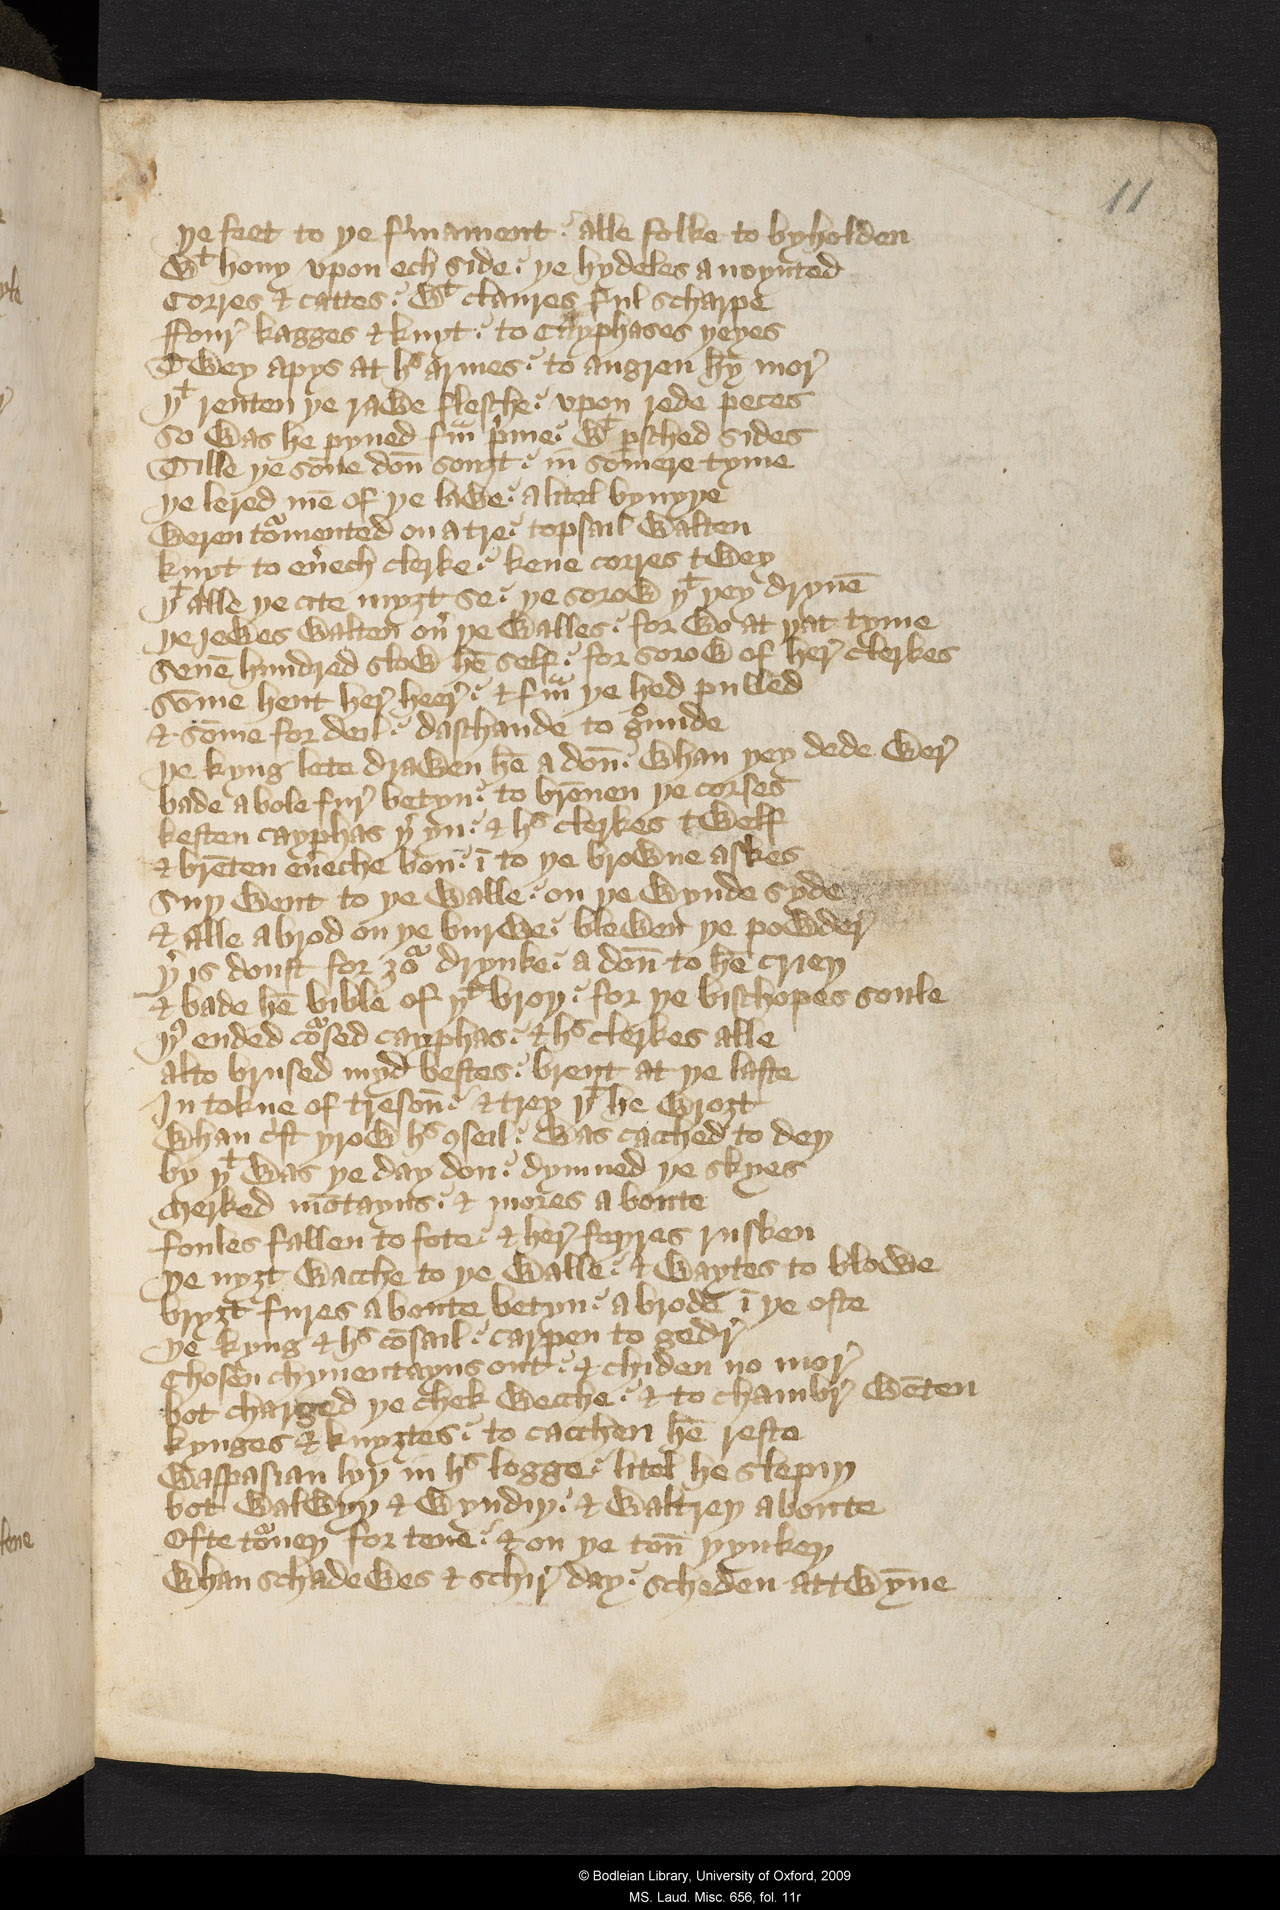 11
ye feet to ye firmament · alle folke to byholden
Wt hony vpon ech side · ye hydeles anoynted
Corres & cattes · Wt claures ful scharpe
ffour kagges & knyt · to Cayphases yeyes
Twey apys at hs armes · to angren hȳ mor
yt renten ye rawe flesche · vpon rede peces
so was he pyned fram prime · Wt persched sides
Tille ye sōne doun souȝt · in sōmere tyme
ye lered mē of ye lawe · a litel bynyye
weren tourmented on a tre · topsail walten
knyt to euerech clerke · kene corres twey
yt alle ye cite myȝt se · ye sorow yt yey dryuē
ye jewes walten ouer ye walles · for wo at yat tyme
Seuē hundred slow hē self · for sorow of her clerkes
Sōme hent her heer · & fram ye hed pulled
& sōme for deil · daschande to grounde
ye kyng lete drawen hē adoun · whan yey dede wer
bade a bole fur betyn · to brēnen ye corses
kesten cayphas yer yn · & hs clerkes twelf
& brēten eueche bon · ī to ye browne askes
Suy went to ye walle · on ye wynde syde
& alle abrod on ye burwe · blewen ye powder
yer is doust for ȝour drynke · adoun to hē crien
& bade hē bible of yt broy · for ye bischopes soule
yus ended coursed cayphas · & hs clerkes alle
alto brused myd bestes · brent at ye laste
In tokne of tresoun · & trey yt he wroȝt
Whan crist yrow hs conseil · was cacched to dey
by yt was ye day don · dymned ye skyes
Merked mōtayns · & mores aboute
foules fallen to fote · & her feyres rusken
ye nyȝt wacche to ye walle · & waytes to blowe
bryȝt fures aboute betyn · abrode ī ye oste
ye kyng & hs cōsail · carpen to geder
Chosen chyuentayns out · & chiden no mor
bot charged ye chek wecche · & to chambr wēten
kynges & knyȝtes · to cacchen hē reste
Waspasian lyy in hs logge · litel he slepiy
bot walwyy & wyndiy · & waltrey aboute
Ofte tourney for tene · & on ye toun yynkey
Whan schadewes & schir day · scheden attwȳne
© Bodleian Library, University of Oxford, 2009
MS. Laud. Misc. 656, fol. 11r